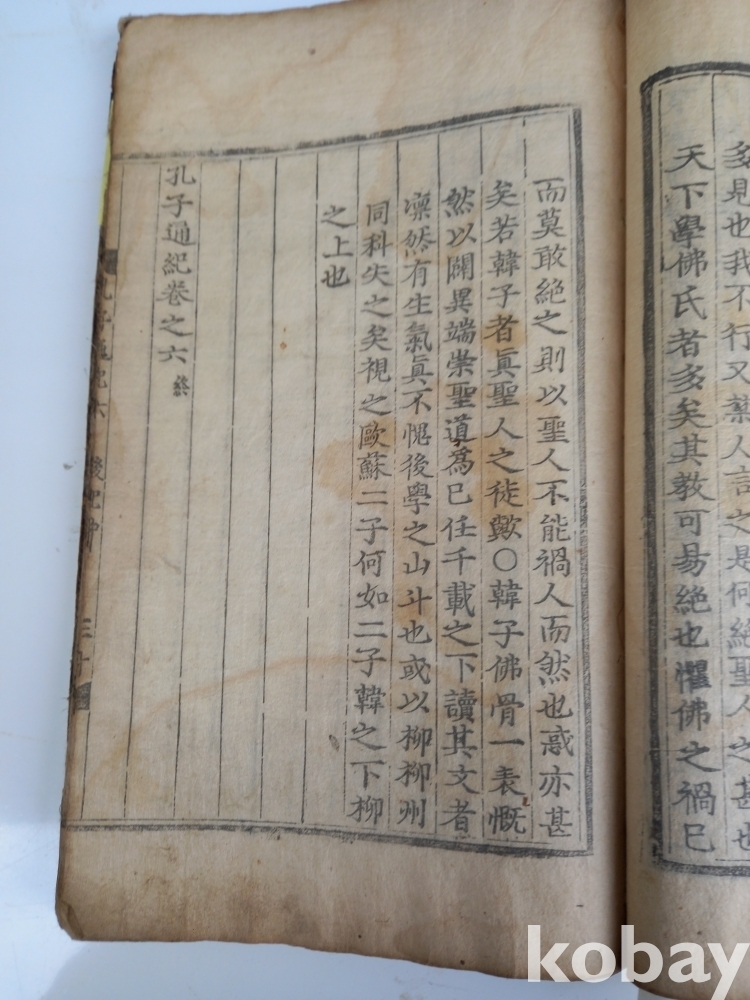 多見也我不行又藥人言之是何絕聖人之甚也
天下學佛氏者多矣其教可易絕也懼佛之禍已
而莫敢絕之則以聖人不能禍人而然也惑亦甚
矣若韓子者眞聖人之徒歟〇韓子佛骨一表慨
然以闢異端崇聖道爲已任千載之下讀其文者
凛然有生氣眞不愧後學之山斗也或以柳柳州
同科失之矣視之歐蘇二子何如二子韓之下柳
之上也
孔子通紀卷之六 終
孔子通紀六
kobay